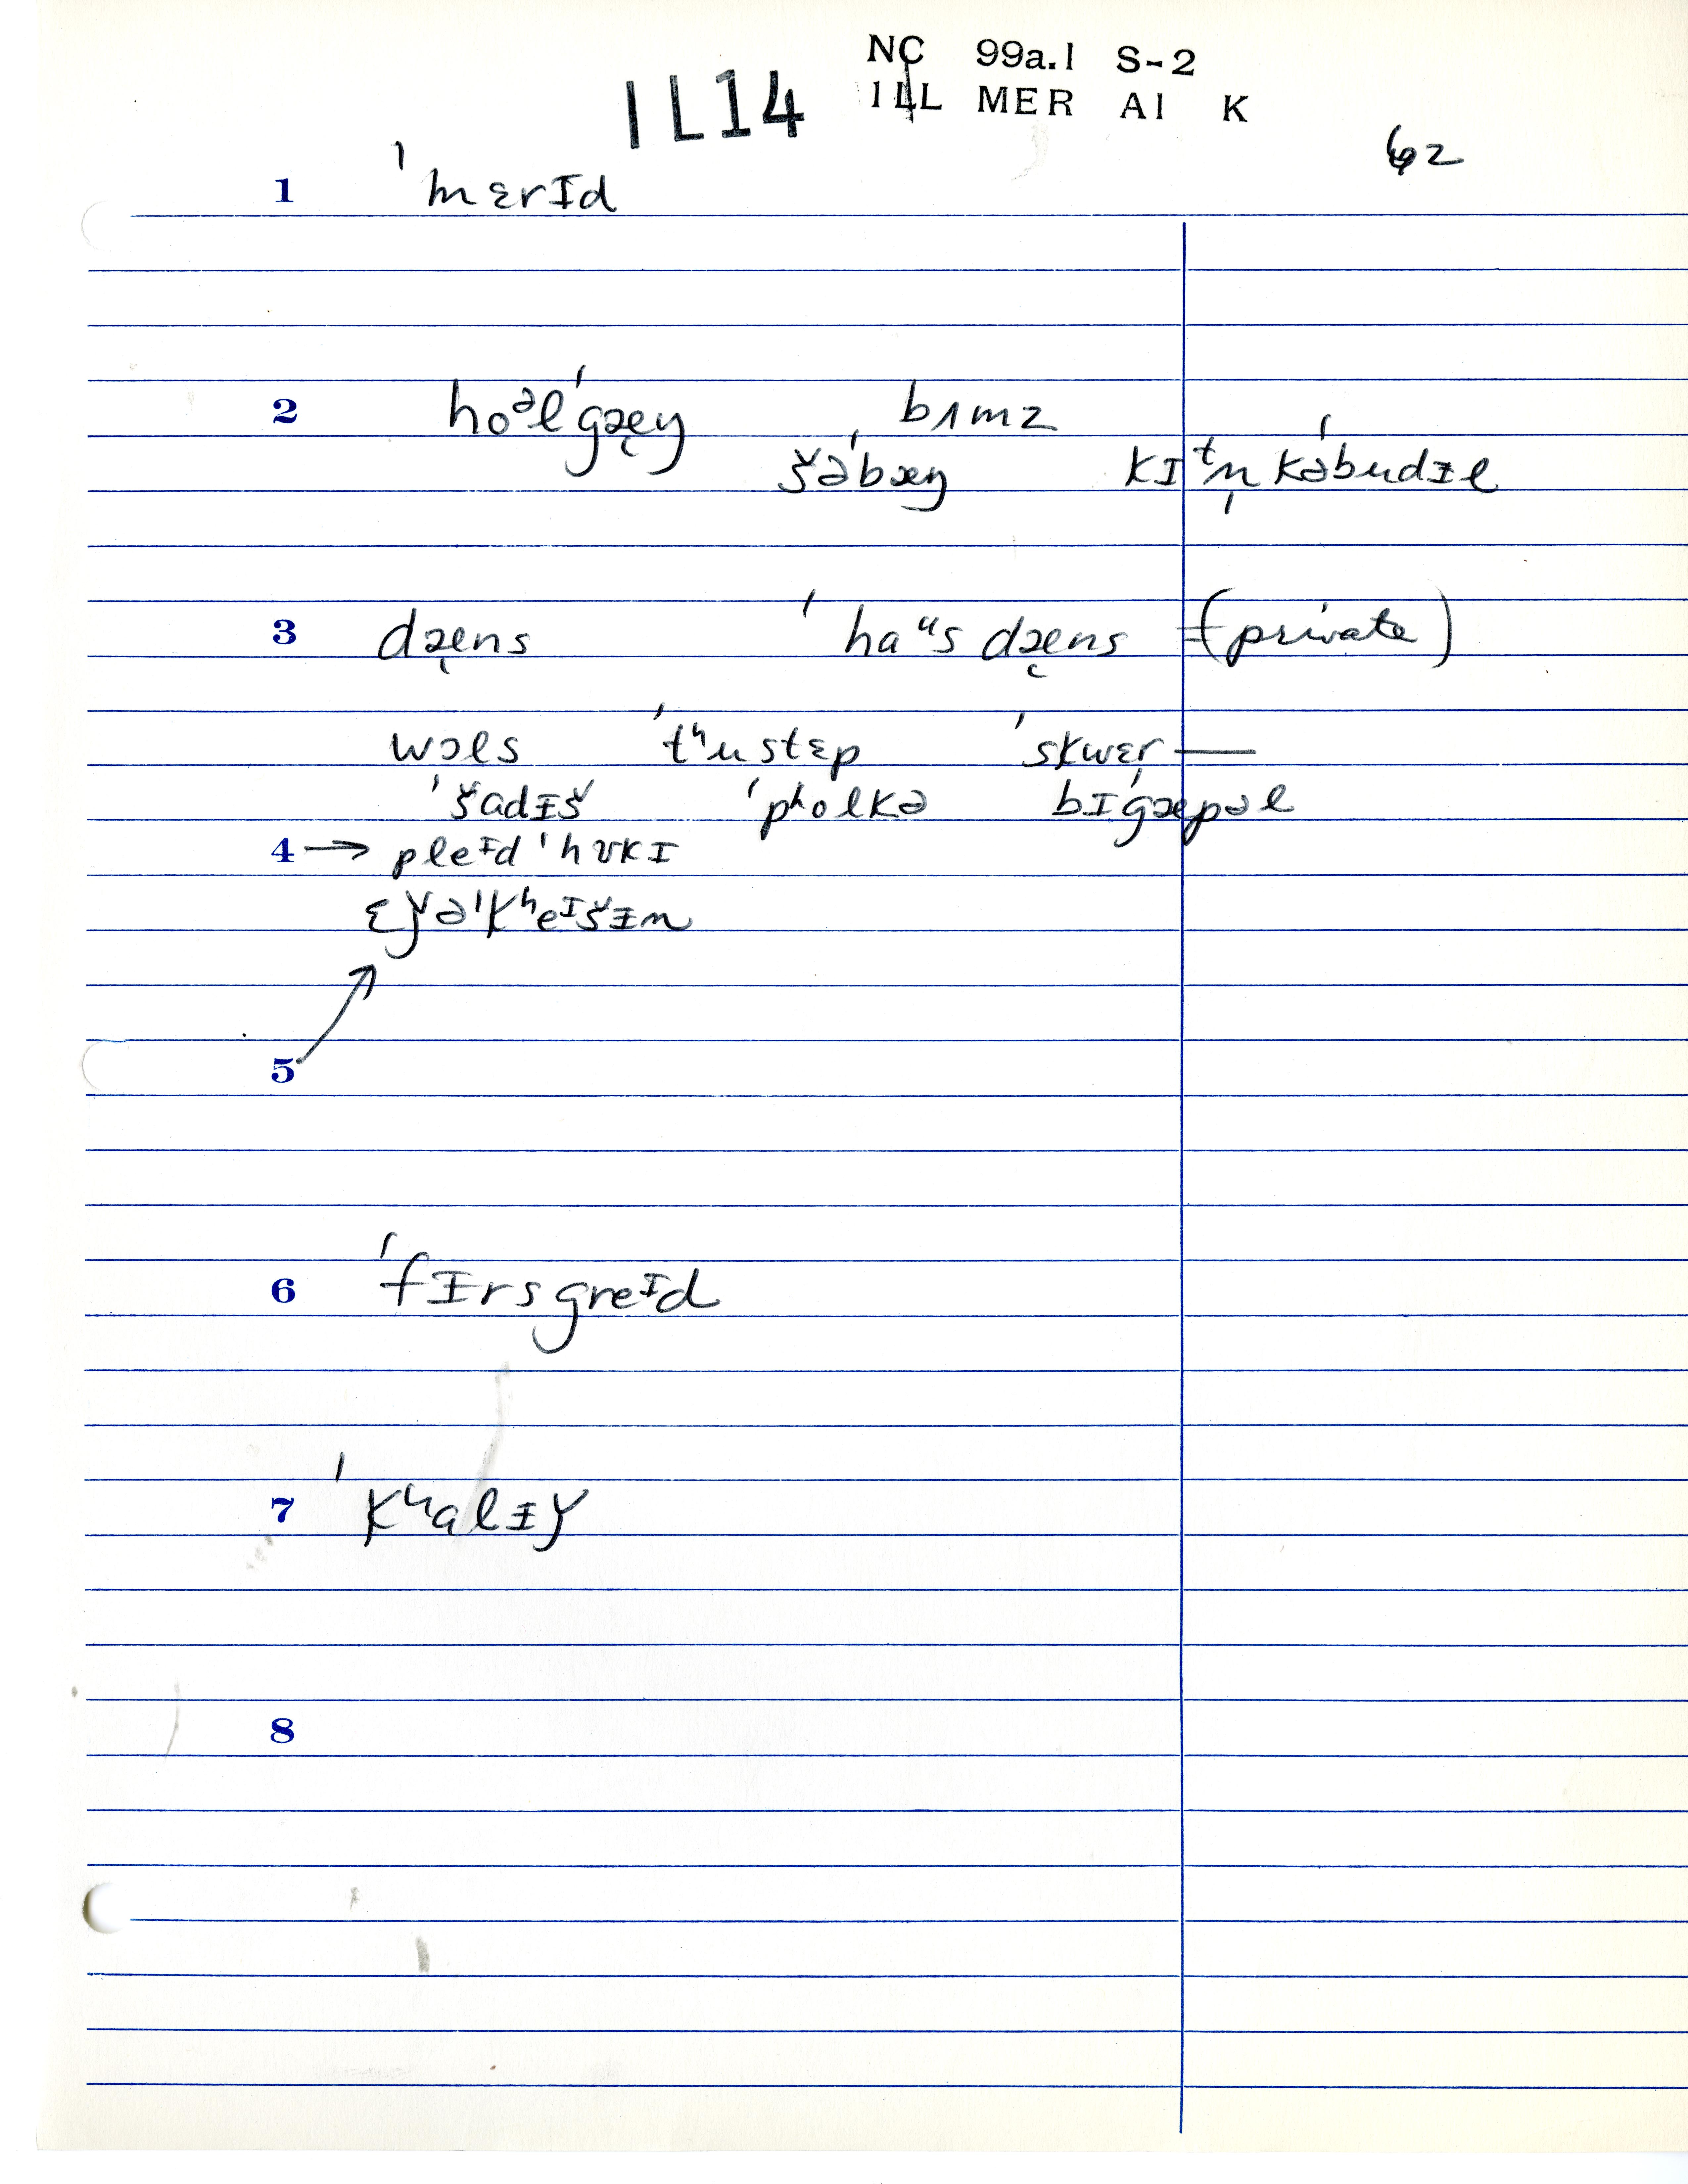 NC 99a.1 S-2
IL14 ILL MER A1 K
62
1 ˈmɛrɪd
2 hoᵊlˈgæ̨ŋ bʌmz
šəˈbæŋ kɪᵗn̩ kəˈbudɨl
3 dæ̨ns ˈhaᵘs dæ̨ns (private)
wɔls ˈtʰustɛp ˈskwɛr —
ˈšadɨš ˈpʰolkə bɪˈgæpəl
4 → pleᶦd ˈhʊkɪ
ɛǰəˈkʰeᶦšɨn
5
6 ˈfɨrsgreᶦd
7 ˈkʰalɨǰ
8